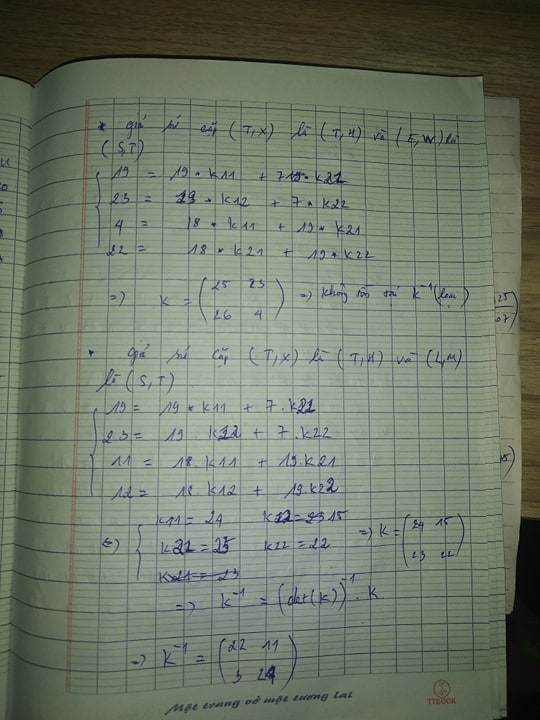 * giả sử cặp (T,X) là (T,H) và (E,W) là
(S,T)
19 = 19 * k11 + 7 * k21
23 = 19 * k12 + 7 * k22
4 = 18 * k11 + 19 * k21
22 = 18 * k21 + 19 * k22
=> K = (25 23
26 4) => không tồn tại K⁻¹ (loại)
• giả sử cặp (T,X) là (T,H) và (L,M)
là (S,T)
19 = 19 * k11 + 7 . k21
23 = 19 . k12 + 7 . k22
11 = 18 . k11 + 19 . k21
12 = 18 . k12 + 19 . k22
<=> k11 = 24 k12 = 23 15
k21 = 23 k22 = 22 => K = (24 15
23 22)
k21 = 23
=> K⁻¹ = (det(K))⁻¹ . K
=> K⁻¹ = (22 11
3 24)
Một trang vở một tương lai
TTBOOK